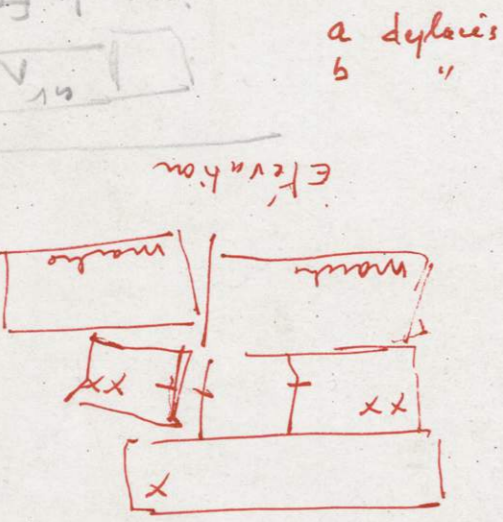 a deplacés
b "
Elévation
marche
marche
xx
xx
x